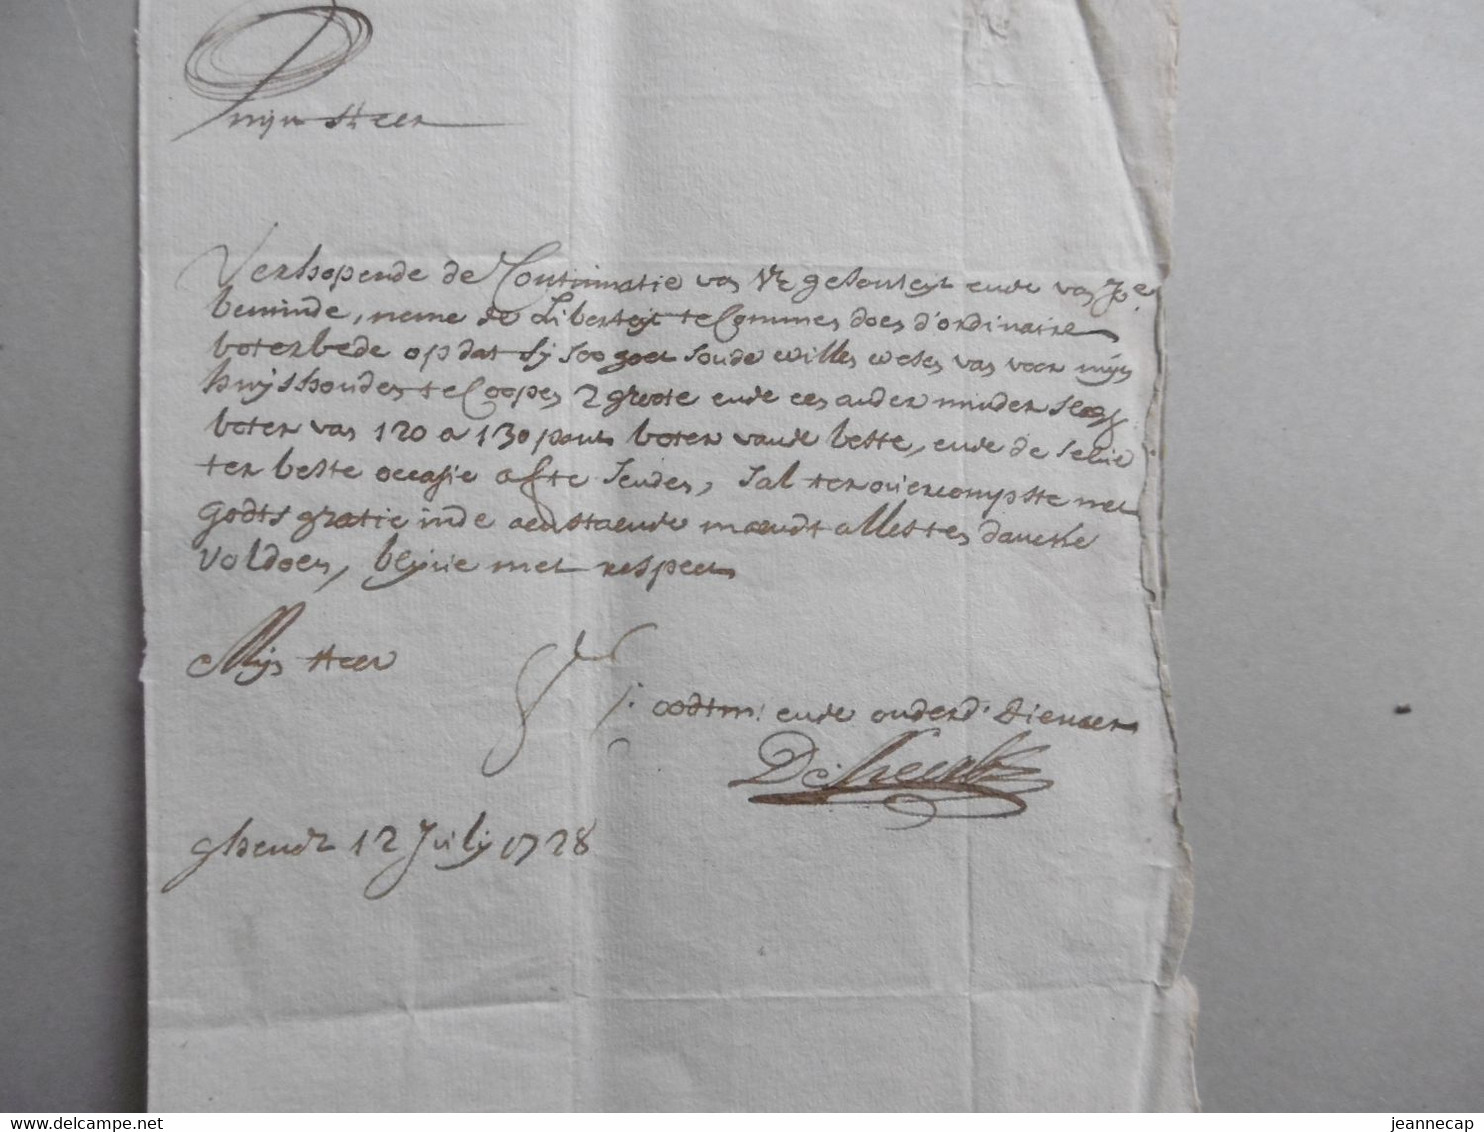 Mijn Heer
Verhopende de Continuatie van VE gesonteyt ende van
beminde, neme de Liberteyt te Commen doen d'ordinaire
boterbede op dat sij soo goet soude willen wesen van voor mijn
huijshouden te Coopen 2 groote ende een ander minder
boter van 120 a 130 pont boter vande beste, ende de selve
ter beste occasie af te senden, sal ter overcompste met
Godts gratie inde aenstaende maendt alles ten dancke
voldoen, blijve met respect
Mijn Heer
oodtm: ende onderd. dienaer
ghendt 12 July 1728
jeannecap